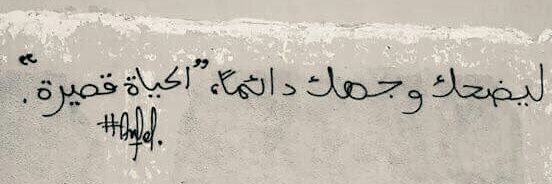 ليضحك وجهك دائمًا، "الحياة قصيرة".
#Anfel.